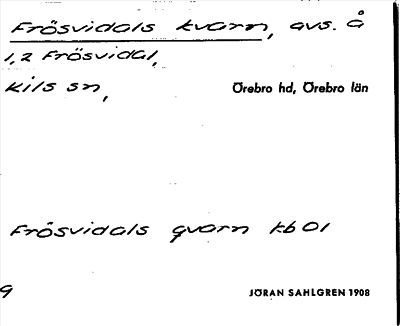 Frösvidals kvarn, avs. å
1,2 Frösvidal,
Kils sn, Örebro hd, Örebro län
Frösvidals qvarn kb 01
9
JÖRAN SAHLGREN 1908